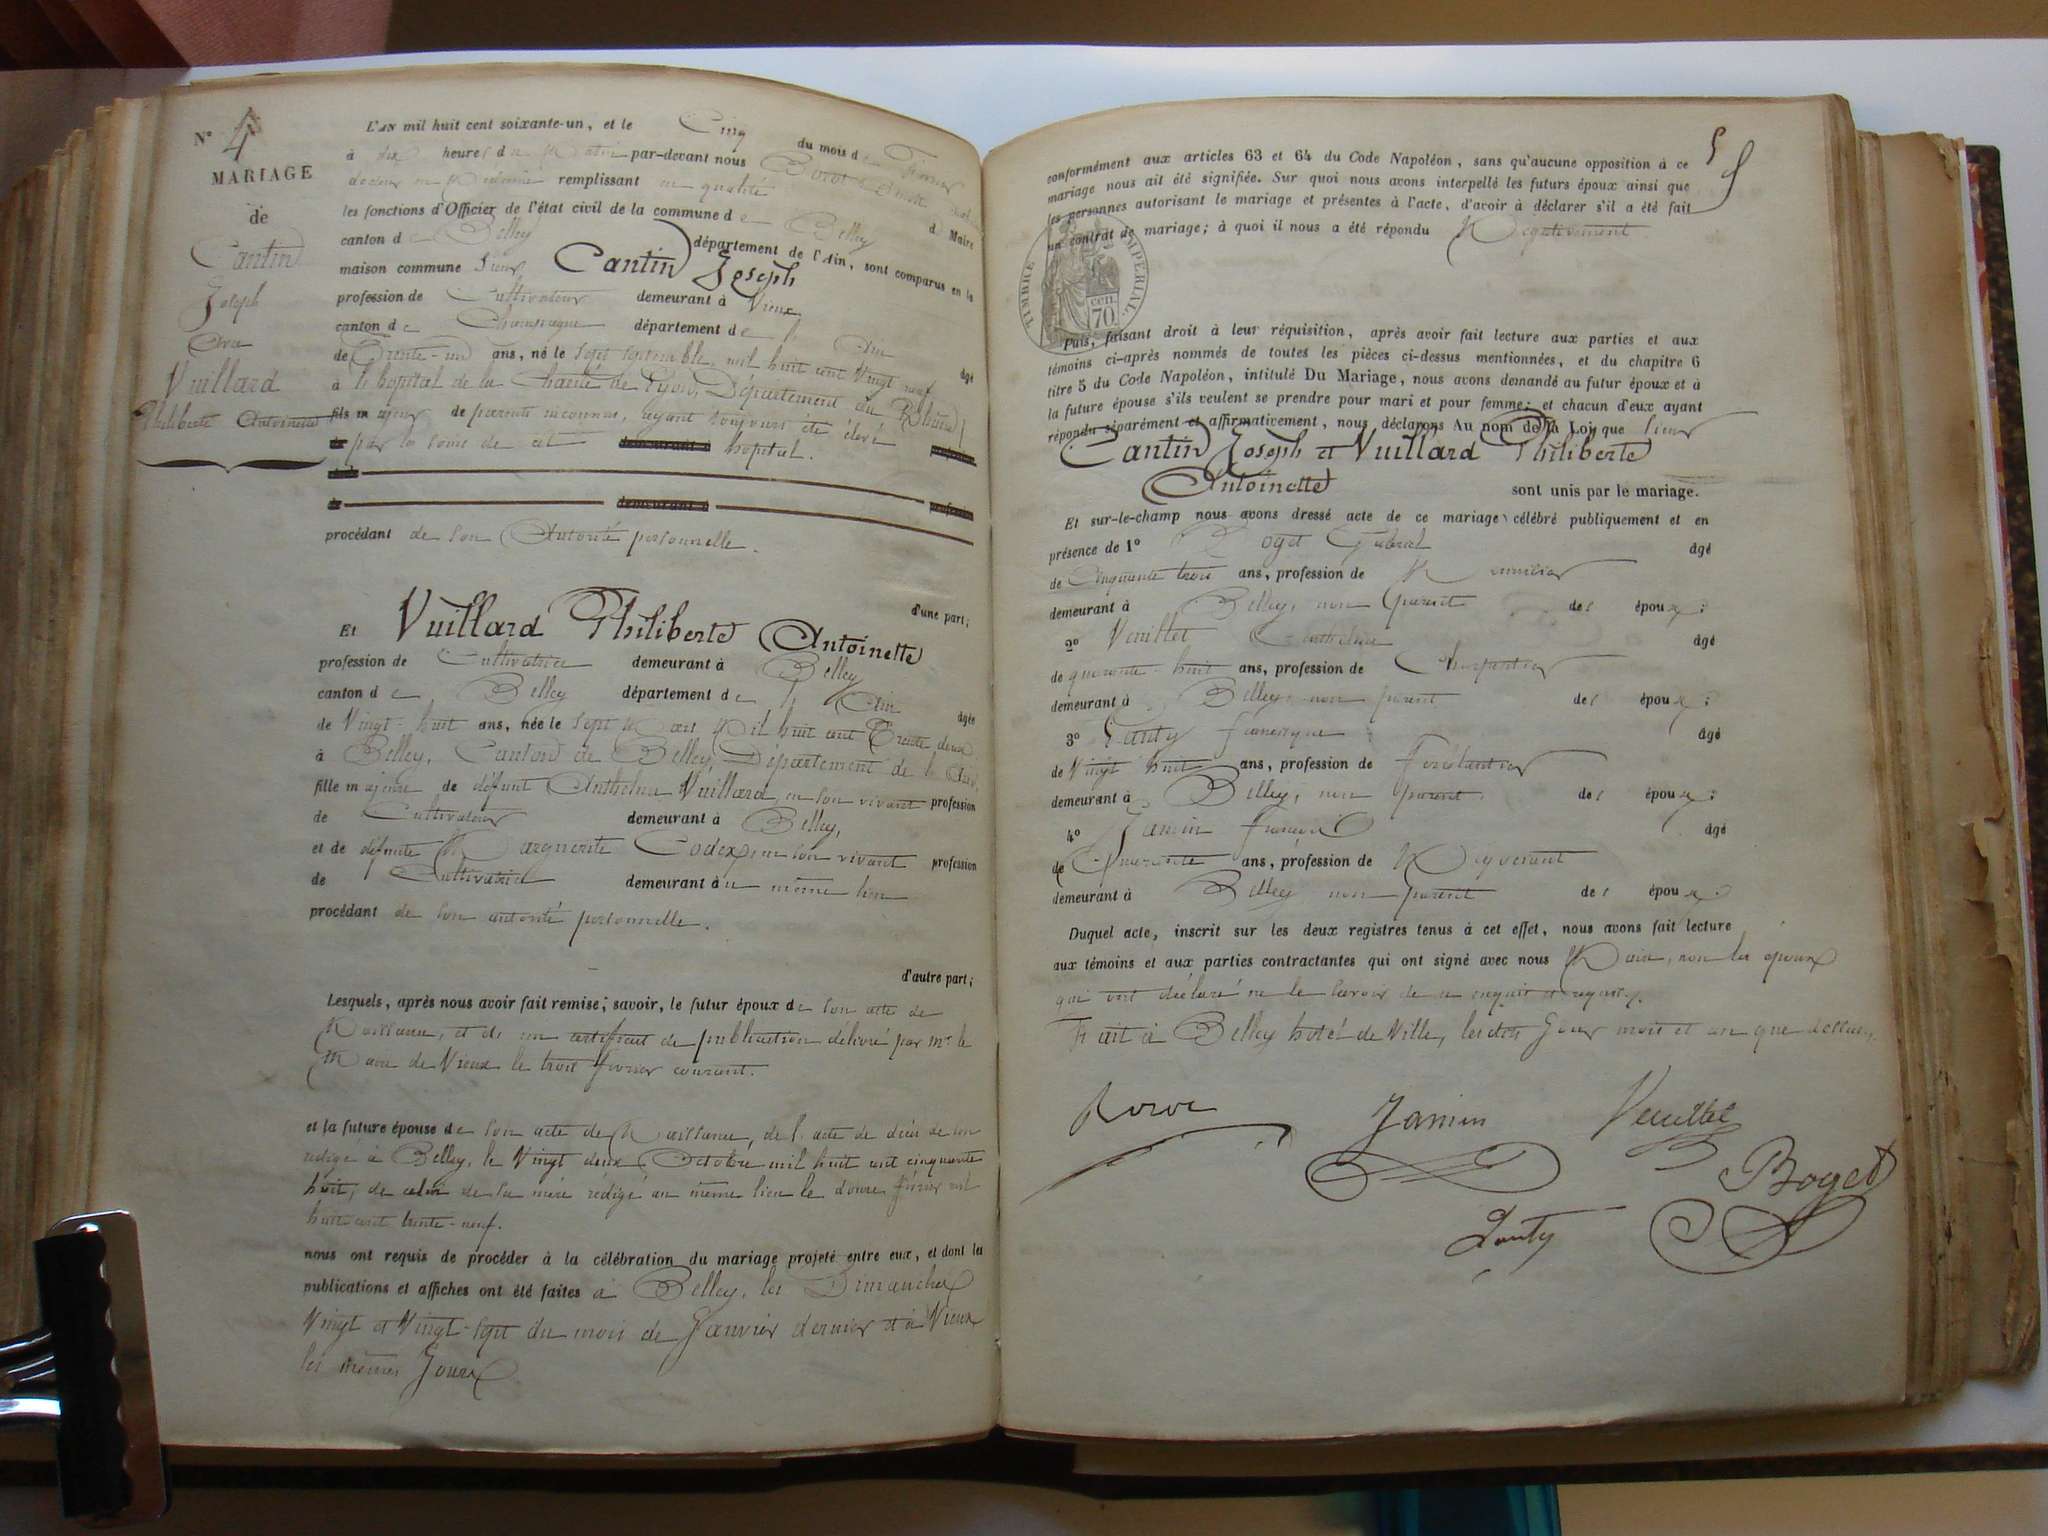 N° 4
MARIAGE
de
Cantin
Joseph
Avec
Vuillard
Philiberte Antoinette
L'AN mil huit cent soixante-un, et le Cinq du mois de Février
à dix heures du Matin par-devant nous
docteur en Médecine remplissant en qualité d Maire
les fonctions d'Officier de l'état civil de la commune de Belley
canton de Belley département de l'Ain, sont comparus en la
maison commune Sieur Cantin Joseph
profession de Cultivateur demeurant à Vieux
canton de Champagne département de l'Ain âgé
de Trente-un ans, né le sept septembre mil huit cent Vingt neuf
à le hopital de la Charité de Lyon, Département du Rhône
fils majeur de parents inconnus, ayant toujours été élevé
par les soins de cet hopital.
procédant de son Autorité personnelle.
d'une part;
Et Vuillard Philiberte Antoinette
profession de Cultivatrice demeurant à Belley
canton de Belley département de l'Ain âgée
de Vingt-huit ans, née le sept Mars Mil huit cent Trente deux
à Belley, Canton de Belley, Département de l'Ain,
fille majeure de défunt Anthelme Vuillard, en son vivant profession
de Cultivateur demeurant à Belley,
et de défunte Marguerite Codex, en son vivant profession
de Cultivatrice demeurant au même lieu
procédant de son autorité personnelle.
d'autre part;
Lesquels, après nous avoir fait remise; savoir, le futur époux de son acte de
Naissance, et de un certificat de publication délivré par mr le
Maire de Vieux le trois février courant.
et la future épouse de son acte de Naissance, de l'acte de décès de son
rédigé à Belley, le Vingt deux Octobre mil huit cent cinquante
huit, de celui de sa mère rédigé au même lieu le douze février mil
huit cent trente-neuf.
nous ont requis de procéder à la célébration du mariage projeté entre eux, et dont les
publications et affiches ont été faites à Belley, les Dimanches
Vingt et Vingt-sept du mois de Janvier dernier et à Vieux
les mêmes Jours
5
conformément aux articles 63 et 64 du Code Napoléon, sans qu'aucune opposition à ce
mariage nous ait été signifiée. Sur quoi nous avons interpellé les futurs époux ainsi que
les personnes autorisant le mariage et présentes à l'acte, d'avoir à déclarer s'il a été fait
un contrat de mariage; à quoi il nous a été répondu Négativement.
TIMBRE IMPÉRIAL
70 cen.
Puis, faisant droit à leur réquisition, après avoir fait lecture aux parties et aux
témoins ci-après nommés de toutes les pièces ci-dessus mentionnées, et du chapitre 6
titre 5 du Code Napoléon, intitulé Du Mariage, nous avons demandé au futur époux et à
la future épouse s'ils veulent se prendre pour mari et pour femme; et chacun d'eux ayant
répondu séparément et affirmativement, nous déclarons Au nom de la Loi que Sieur
Cantin Joseph et Vuillard Philiberte
Antoinette sont unis par le mariage.
Et sur-le-champ nous avons dressé acte de ce mariage célébré publiquement et en
présence de 1° Boget Gabriel âgé
de Cinquante trois ans, profession de Menuisier
demeurant à Belley, non parent des époux;
2° Veuillet Anthelme âgé
de quarante-huit ans, profession de Charpentier
demeurant à Belley, non parent des époux;
3° Lanty âgé
de Vingt huit ans, profession de Ferblantier
demeurant à Belley, non parent des époux;
4° Jamin François âgé
de Quarante ans, profession de
demeurant à Belley non parent des époux.
Duquel acte, inscrit sur les deux registres tenus à cet effet, nous avons fait lecture
aux témoins et aux parties contractantes qui ont signé avec nous Maire, non les époux
qui ont déclaré ne le savoir de ce enquis et requis.
Fait à Belley hotel de Ville, les dits Jour mois et an que dessus.
Jamin Veuillet
Boget
Lanty